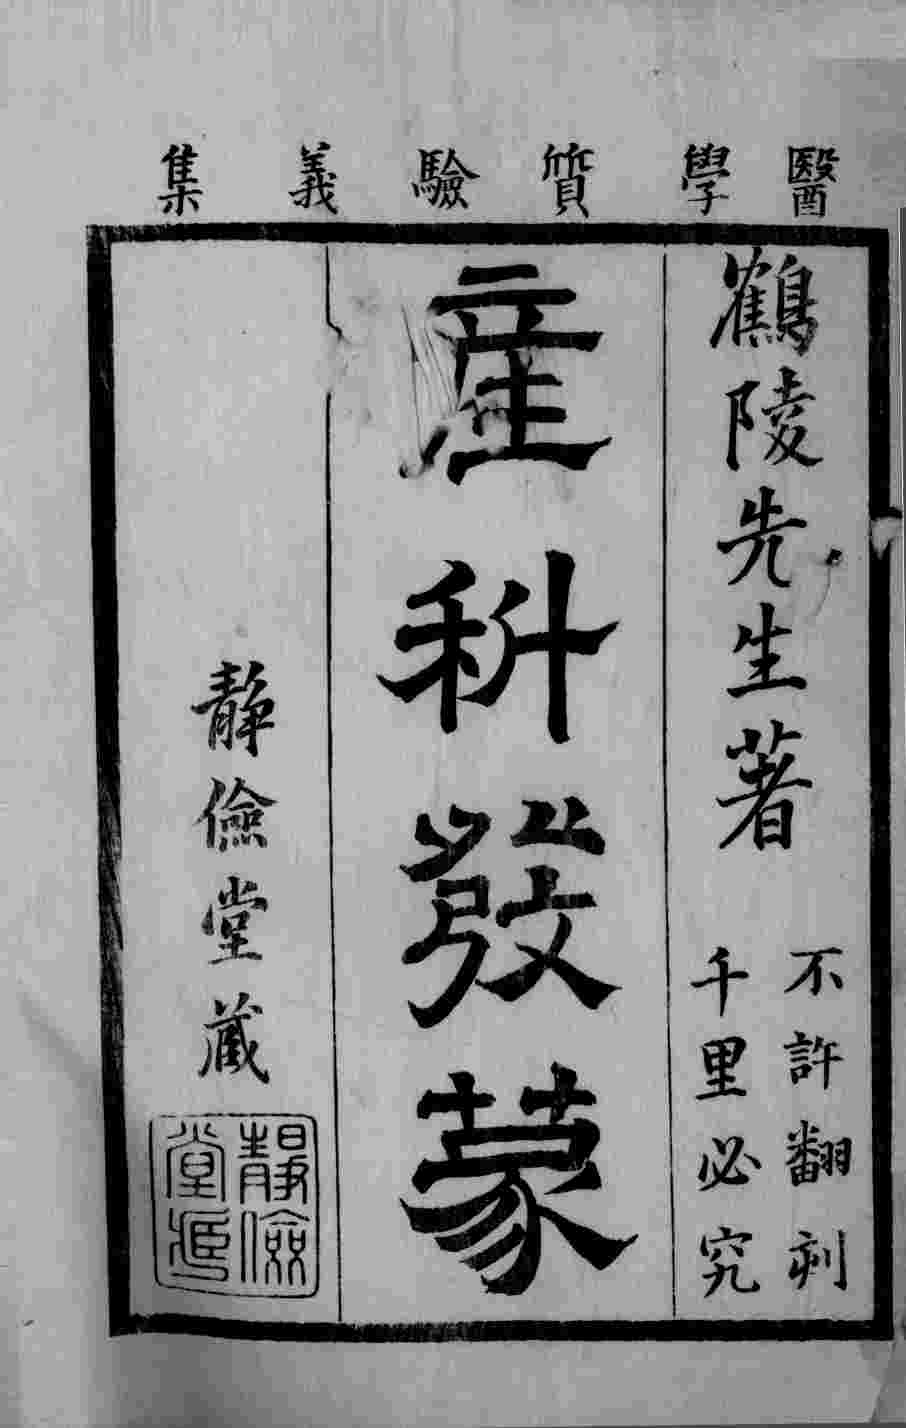 醫學質驗義集
鶴陵先生著
不許翻刻
千里必究
産科發蒙
靜儉堂藏
靜儉堂藏